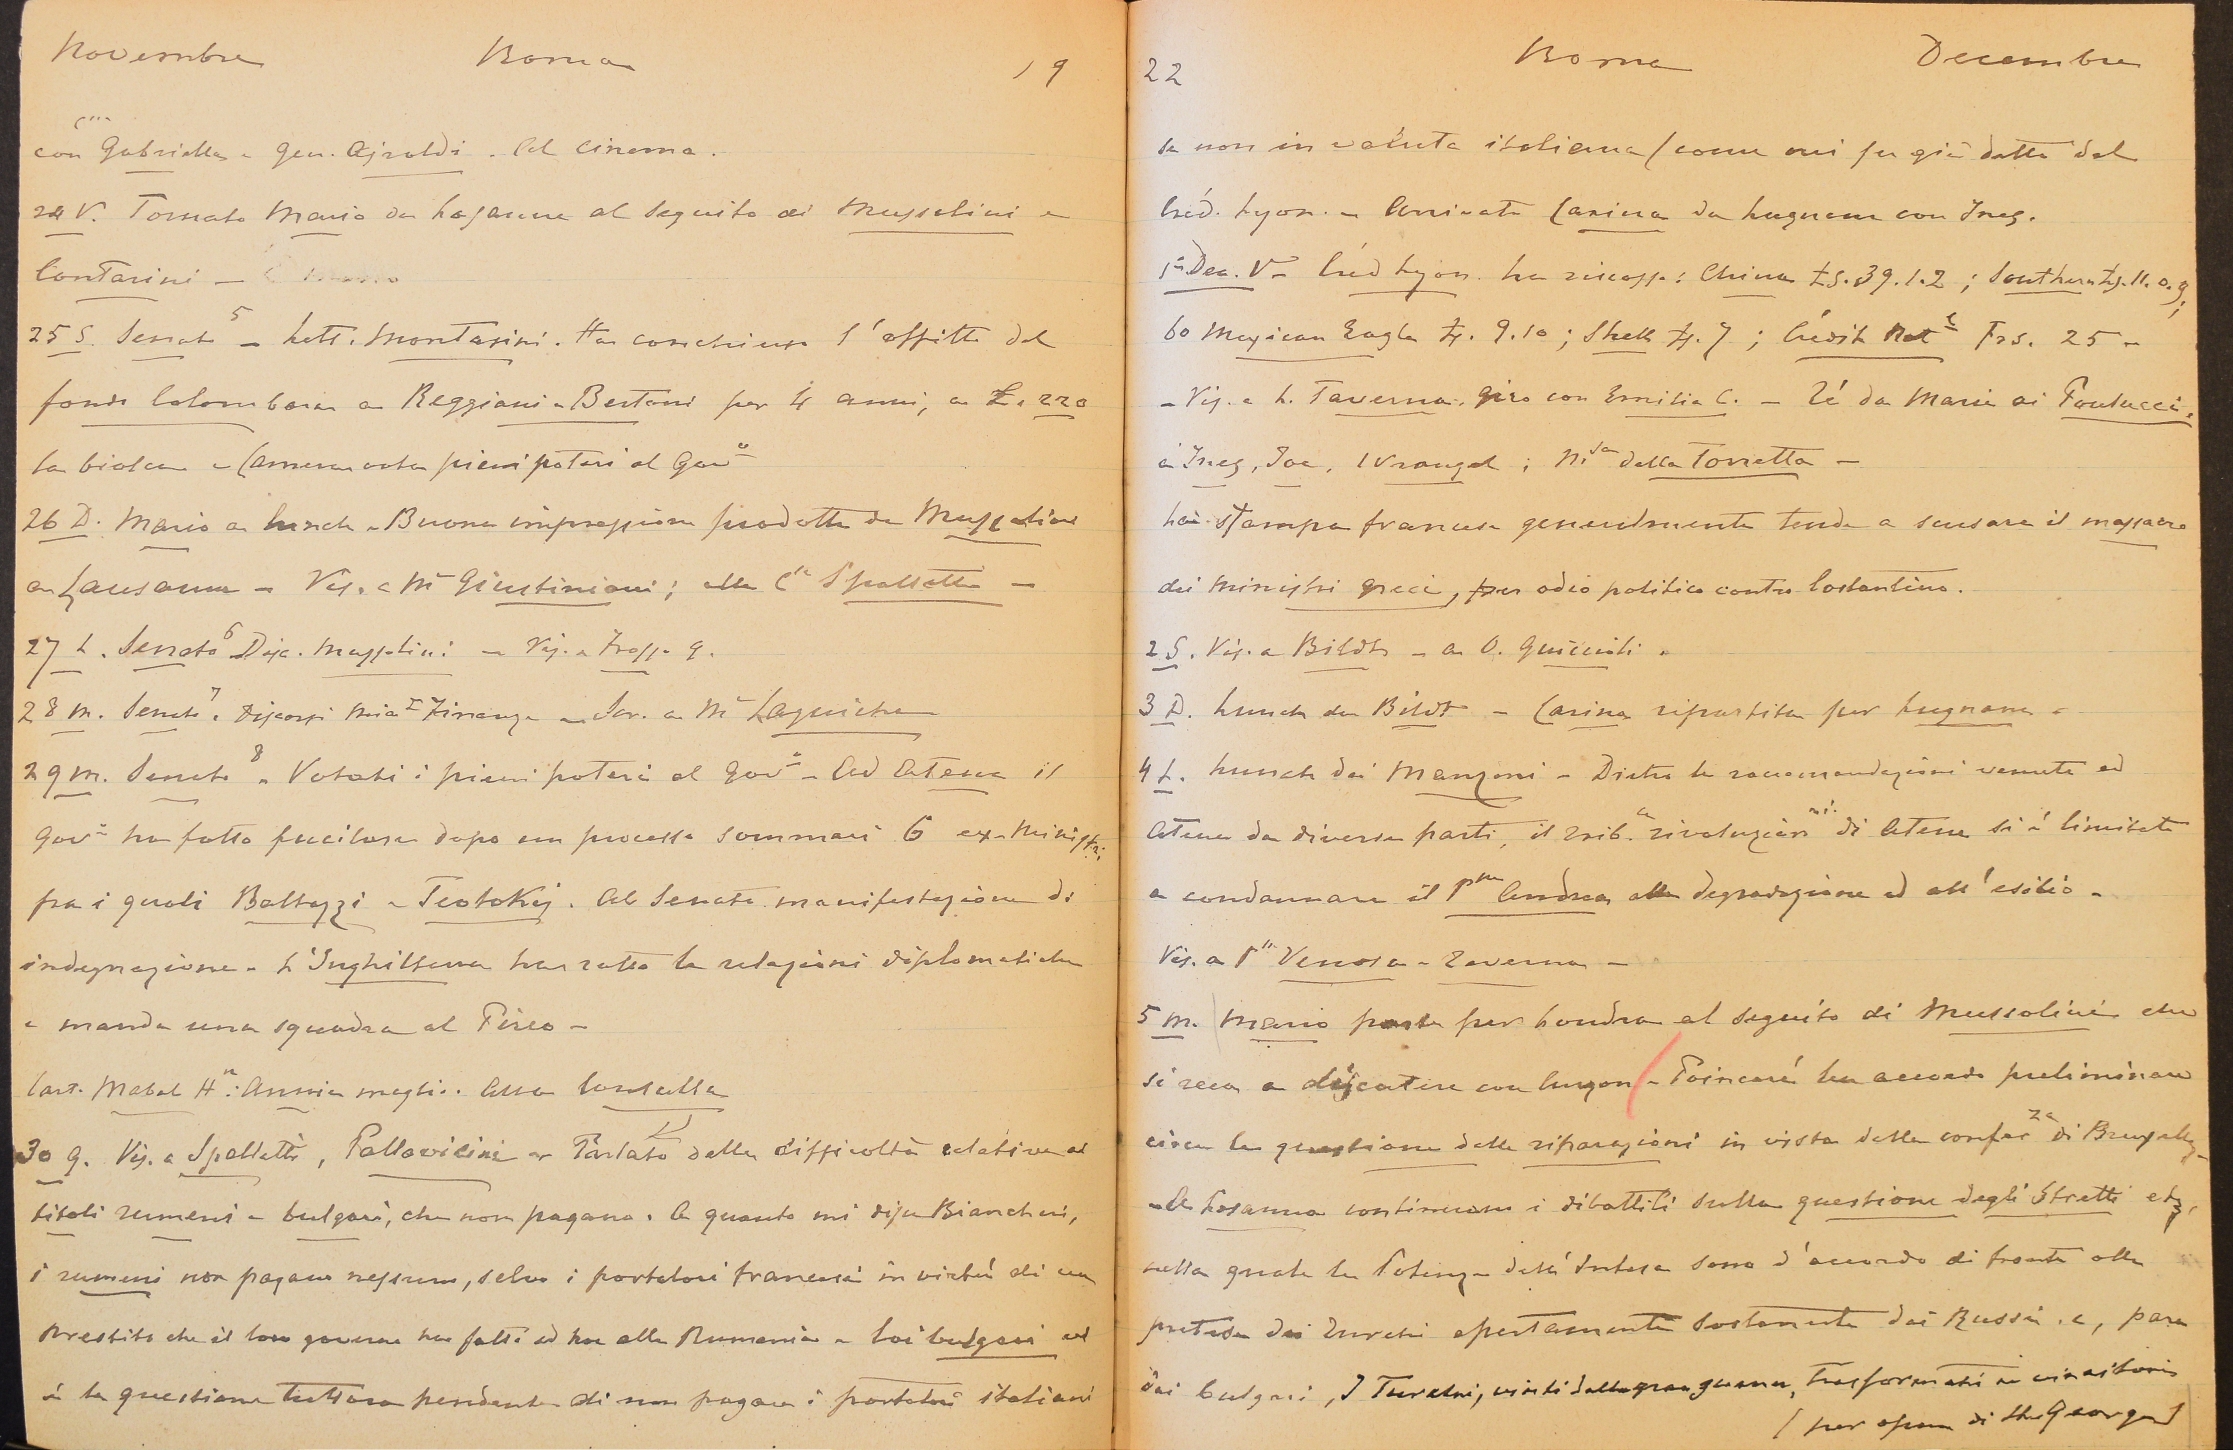 Novembre Roma 19
C.ssa
con Gabriella e gen. Ajroldi. Al cinema.
24 V. Tornato Mario da Losanna al seguito di Mussolini e
Contarini –
25 S. Senato 5 – Lett. Montanini. Ha conchiuso l'affitto del
fondo Colombara a Reggiani e Bertoni per 4 anni, a £. 220
la biolca – Camera vota pieni poteri al Gov.o
26 D. Mario a lunch – Buona impressione prodotta da Mussolini
a Lausanne – Vis. a M. Giustiniani; alla C.a Spalletti –
27 L. Senato 6 Disc. Mussolini – Vis. a
28 M. Senato 7. Discorsi Finanze – a M. Laguiche
29 M. Senato 8 – Votati i pieni poteri al Gov.o – Ad Atene il
Gov.o ha fatto fucilare dopo un processo sommari 6 ex-Ministri,
fra i quali Baltazzi e Teotoky. Al Senato manifestazione di
indegnazione – L'Inghilterra ha rotto le relazioni diplomatiche
e manda una squadra al Pireo –
Cart. Mabel H.: Annie meglio.
30 G. Vis. a Spalletti, Pallavicini – Parlato delle difficoltà relative ai
titoli rumeni e bulgari, che non pagano. A quanto mi disse Biancheri,
i rumeni non pagano nessuno, salvo i portatori francesi in virtù di un
prestito che il loro governo ha fatto ad hoc alla Rumania – Coi bulgari
è la questione tuttora pendente di non pagare i portatori italiani
22 Roma Decembre
se non in valuta italiana (come mi fu già detto dal
Créd. Lyon. – Arrivata Carina da Lugnano con Ines.
1° Dec. V – Créd Lyon. ha riscosso: China £s. 39.1.2; Southern £s. 11.0.9;
60 Mexican Eagle £s. 9.10; Shell £s. 7; Crédit Nat.l Frs. 25 –
– Vis. a L. Taverna. Giro con Emilia C. – Té da Maria ai
a Ines, Wrangel; M.sa della Torretta –
La stampa francese generalmente tende a scusare il massacro
dei ministri greci, per odio politico contro Costantino.
2 S. Vis. a Bildt – a O.
3 D. Lunch da Bildt – Carina ripartita per Lugnano –
4 L. Lunch dai Manzoni – Dietro le raccomandazioni venute ad
Atene da diverse parti, il trib.le rivoluzion di Atene si è limitato
a condannare il P.pe Andrea alla degradazione ed all'esilio –
Vis. a P.ssa Venosa – Taverna –
5 M. Mario parte per Londra al seguito di Mussolini che
si reca a discutere con Curzon – Poincaré un accordo preliminare
circa la questione delle riparazioni in vista della confer.za di Bruxelles –
– A Losanna continuano i dibattiti sulla questione degli Stretti etc,
nella quale le Potenze dell'Intesa sono d'accordo di fronte alle
pretese dei Turchi apertamente sostenute dai Russi, e, pare
dai bulgari, I Turchi, vinti dalla gran guerra, trasformati in vincitori
(per opera di Ll. George)